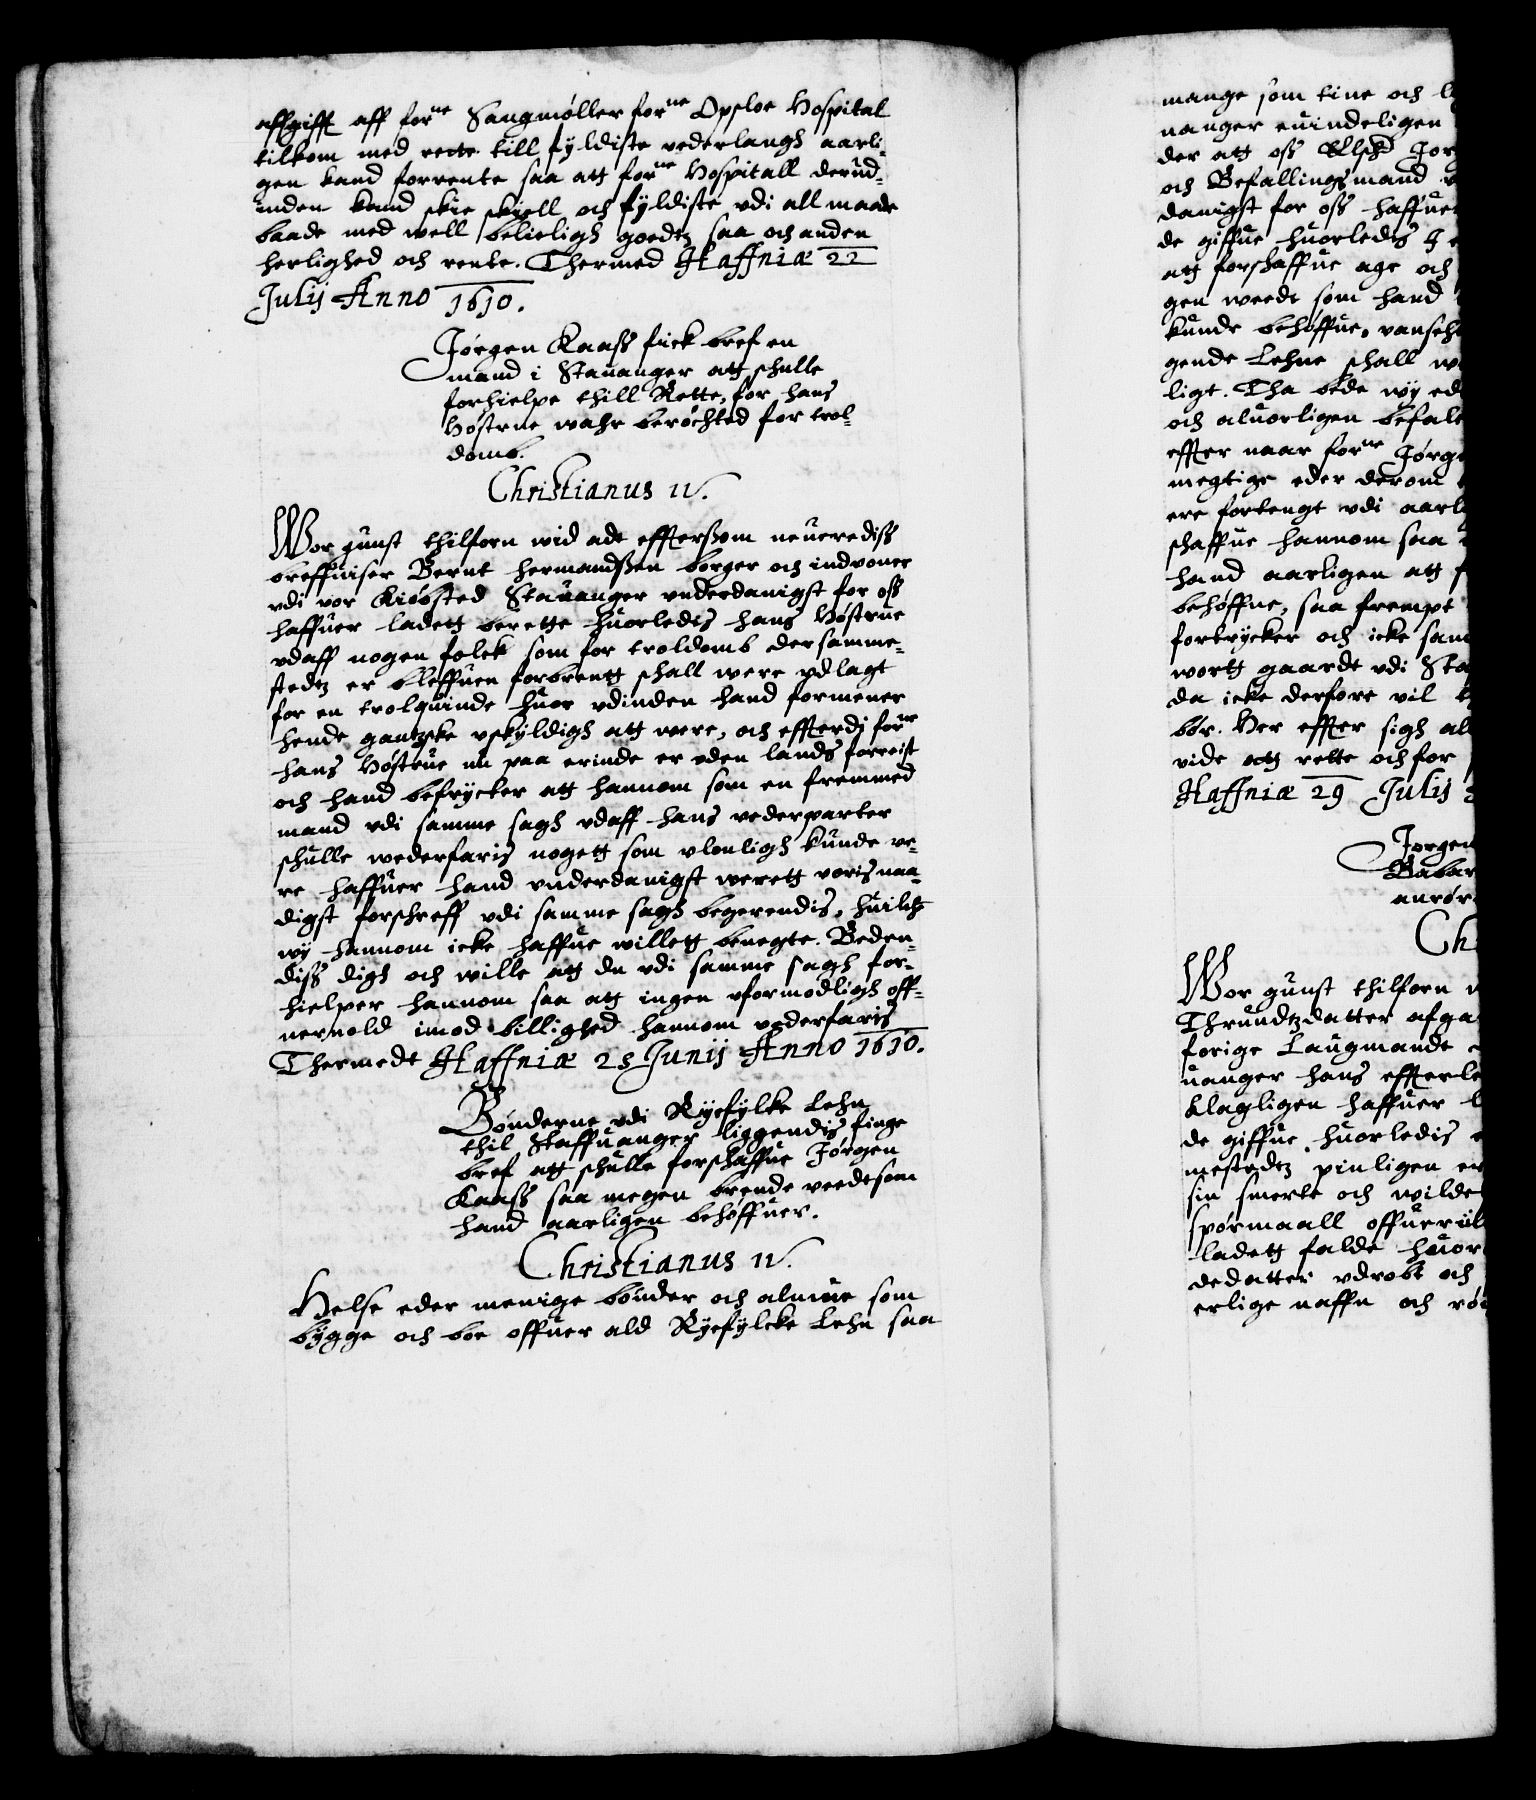 affgifft aff forne Saugmøller forne Opsloe Hospital
tilkom med rette till fyldiste vederlaugh aarli-
gen kand forrente saa att forne Hospitall derud-
inden kand skie skiell och fyldiste vdi all maade
baade med well belieligh goedtz saa och anden
herlighed och rente. Thermed Haffniæ 22
Julij Anno 1610.
Jørgen Kaass fick bref en
mand i Stauanger att schulle
forhielpe thill Rette, for hans
Høstrue wahr berøchted for trol-
domb.
Christianus IV.
Wor gunst thilforn wid adt effterssom neuerediss
breffuiser Bernt Hermandssen borger och indvoner
vdi vor Kiøbsted Stauanger vnderdanigst for oss
haffuer ladett berette huorledis hans Høstrue
vdaff nogen folck som for troldomb dersamme-
stedtz er bleffuen forbrentt schall were vdlagt
for en trolquinde huor vdinden hand formener
hende gantzske vskyldigh att were, och effterdj forne
hans Høstrue nu paa erinde er vden lands forreist
och hand befrycter att hannom som en fremmed
mand vdi samme sagh vdaff hans vederparter
schulle wederfaris nogett som vlouligh kunde ve-
re haffuer hand vnderdanigst werett voris naa-
digst forschreff vdi samme sagh begerendis, huilchet
wy hannom icke haffue willett benegte. Beden-
diss digh och wille att du vdi samme sagh for-
hielper hannom saa att ingen vformodligh off-
neruold imod billighed hannom vederfaris
Thermedt Haffniæ 25 Junij Anno 1610.
Bønderne vdi Ryefylke Lehn
thil Staffuanger liggendis finge
bref att schulle forschaffue Jørgen
Kaass saa megen brende veedt som
hand aarligen behøffuer.
Christianus IV.
Helse eder menige bønder och almue som
bygge och boe offuer ald Ryefylcke Lehn saa
mange som tine och
nanger euindeligen
der att oss Elsk Jor
och Befallingsmand
danigst for oss haffuer
de giffue huorledis
att forschaffue age och
gen weedt som hand
kunde behøffue, vanseh
gende Lehne schall
ligt. Tha bede wy
och aluorligen befale
effter naar forne Jørge
megtige eder derom
ere fortengt vdi aarl
schaffue hannom saa
hand aarligen att
behøffue, saa frempt
fortrycker och icke sam
wortt gaardt vdi Sta
da icke derfore vil
bør. Her effter sigh al
vide att rette och for
Haffniæ 29 Julij
Jørgen
Babar
anrør
Ch
Wor gunst thilforn
Thrundtzdatter afga
forige Laugmandt
uanger hans effterle
Klagligen haffuer
de giffue huorledis
mestedtz pinligen
sin smerte och wilde
spørmaall offueriil
ladett falde huor
dedatter vdrobt och
erlige naffn och